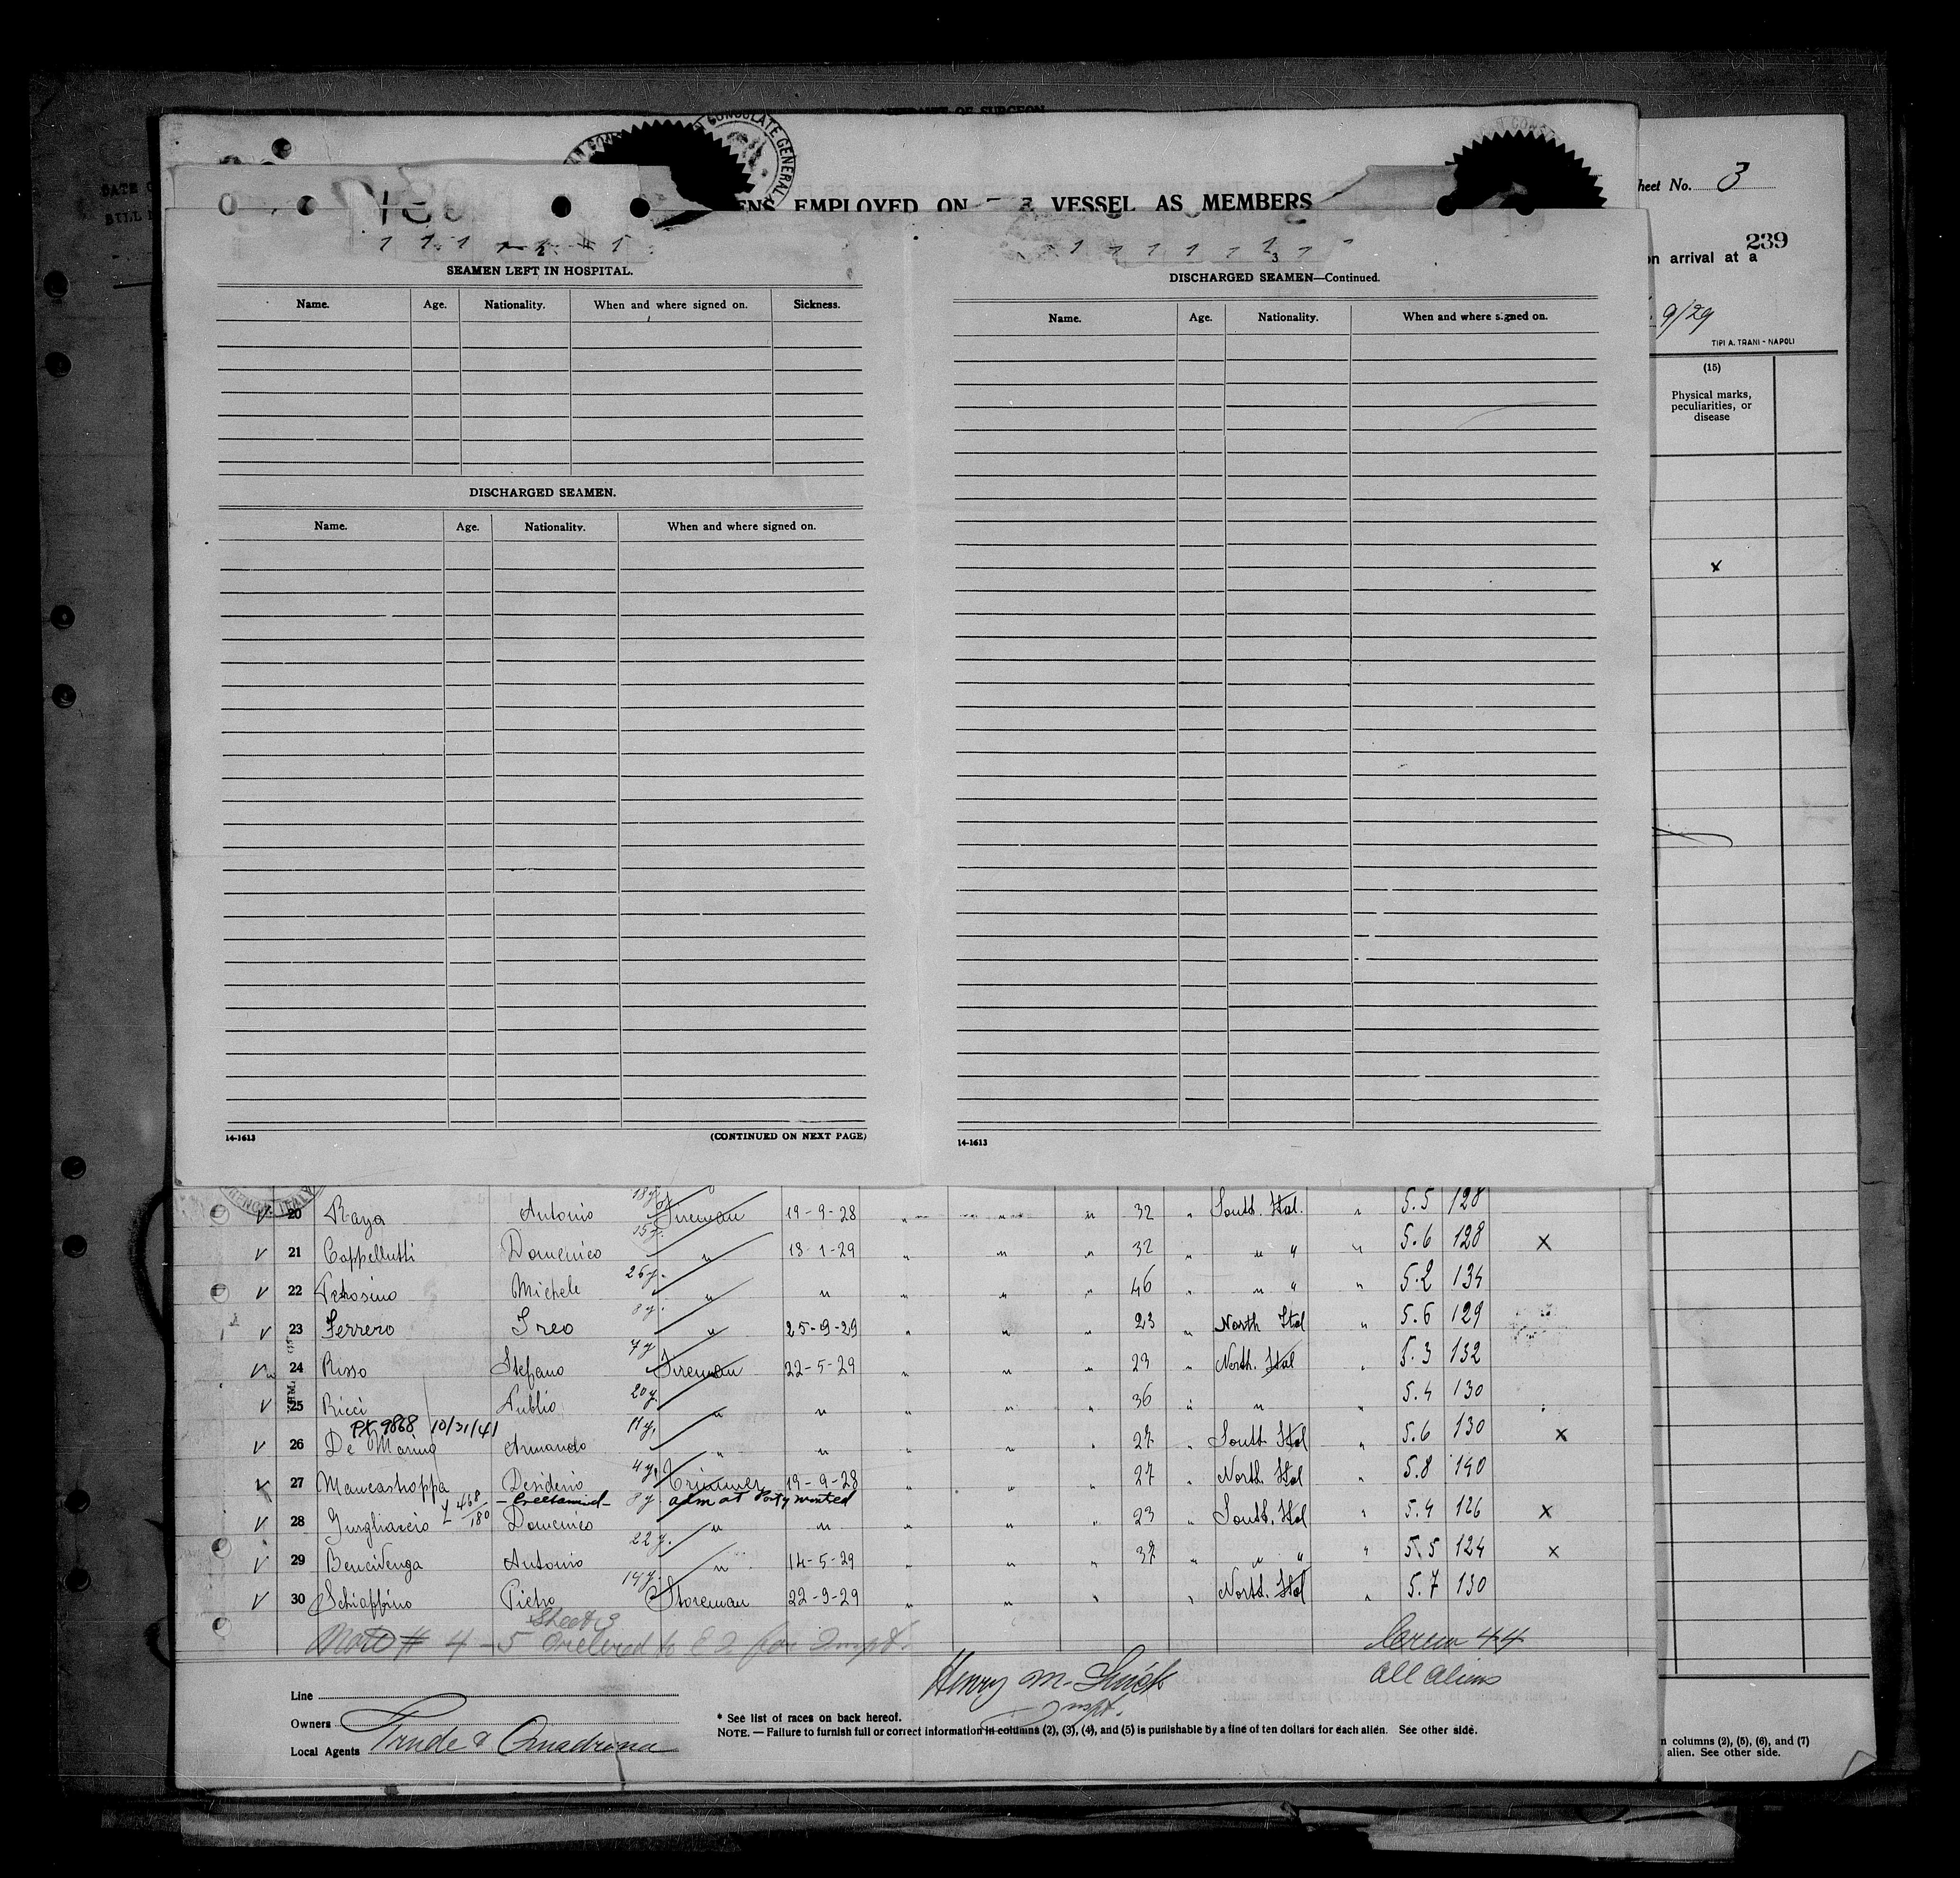 AFFIDAVIT OF SURGEON
CONSULATE GENERAL
EMPLOYED ON VESSEL AS MEMBERS
Sheet No. 3
239
on arrival at a
9/29
TIPI A. TRANI - NAPOLI
(15)
Physical marks, peculiarities, or disease
x
2
SEAMEN LEFT IN HOSPITAL.
Name. Age. Nationality. When and where signed on. Sickness.
DISCHARGED SEAMEN.
Name. Age. Nationality. When and where signed on.
14-1613 (CONTINUED ON NEXT PAGE)
3
DISCHARGED SEAMEN—Continued.
Name. Age. Nationality. When and where signed on.
14-1613
V 20 Raya Antonio 18y. Fireman 19-9-28 " " " 32 " South. Ital. " 5.5 128
V 21 Cappellutti Domenico 15y. " 18-1-29 " " " 32 " " " " 5.6 128 X
V 22 Michele 26y. " " " " " 46 " " " " 5.2 134
V 23 Ferrero Ireo 8y. " 25-9-29 " " " 23 " North Ital " 5.6 129
V 24 Risso Stefano 7y Fireman 22-5-29 " " " 23 " North. Ital " 5.3 132
V 25 Ricci Publio 20y " " " " " 36 " " " 5.4 130
PX 9868 10/31/41
V 26 De Marino Armando 11y. " " " " " 27 " South Ital " 5.6 130 X
V 27 Mancastroppa Desiderio 4y. Trimmer 19-9-28 " " " 27 " North. Ital " 5.8 140
468/180 adm at Port
V 28 Domenico 8y. " " " " " 23 " South. Ital " 5.4 126 X
V 29 Bencivenga Antonio 22y. " 14-5-29 " " " 37 " " " " 5.5 124 X
V 30 Schiaffino Pietro 14y. Storeman 22-9-29 " " " North. Ital " 5.7 130
Sheet 3
Note # 4 - 5 Ordered to E I for
Crew 44
All aliens
Henry M.
Inspt.
Line
Owners
Local Agents
* See list of races on back hereof.
NOTE. — Failure to furnish full or correct information in columns (2), (3), (4), and (5) is punishable by a fine of ten dollars for each alien. See other side.
n columns (2), (5), (6), and (7)
alien. See other side.